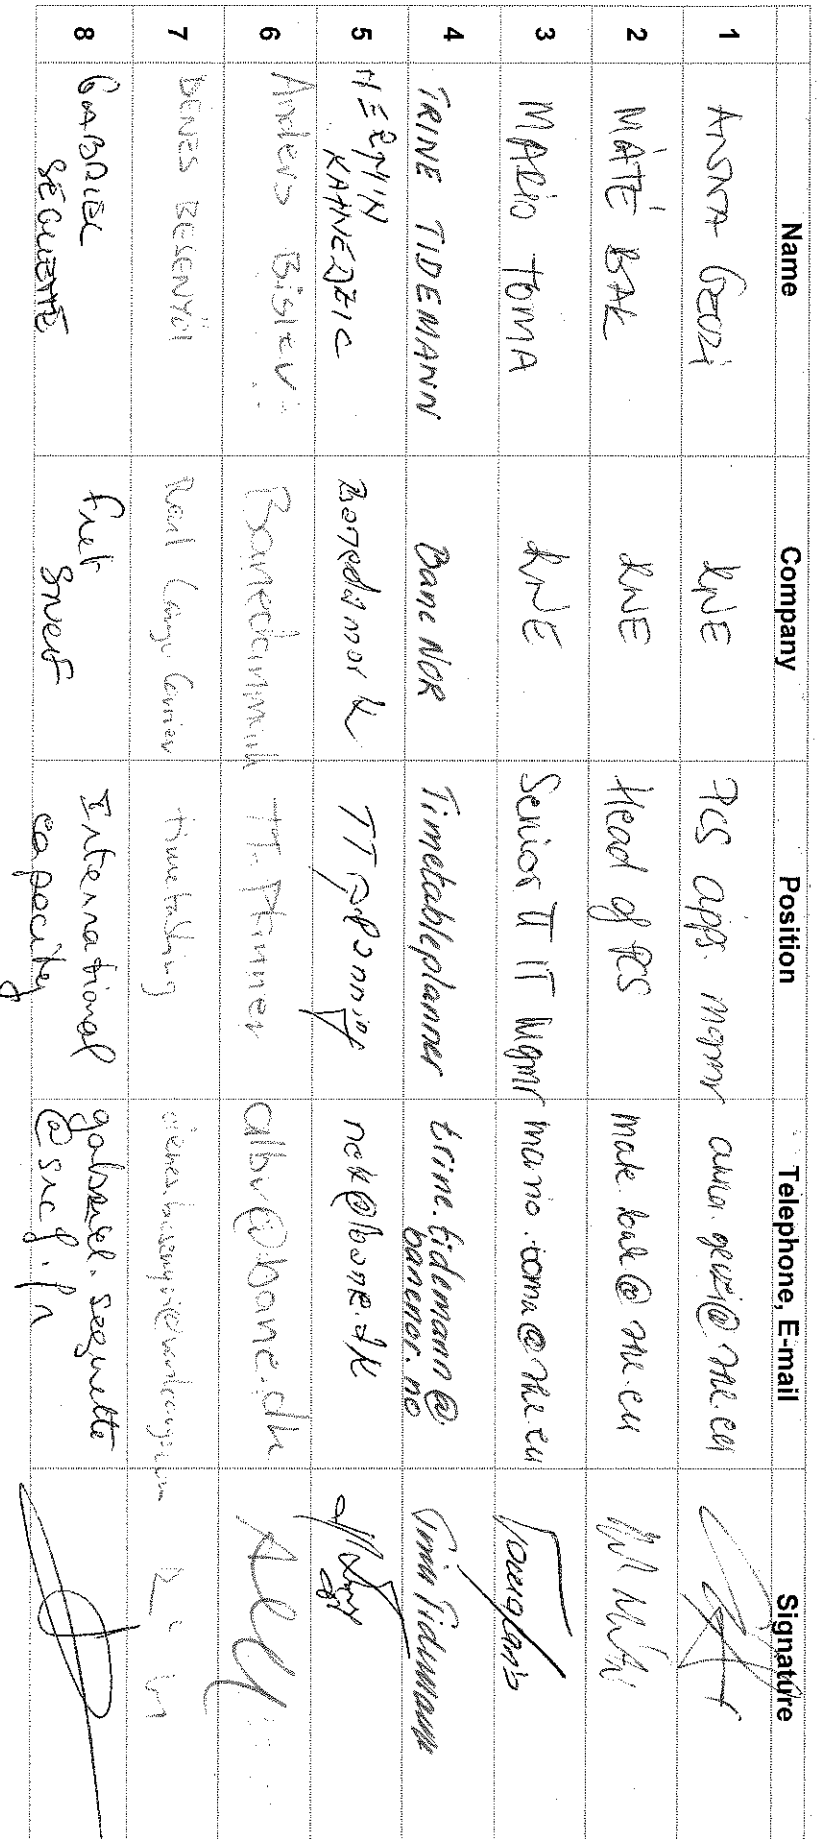 Name Company Position Telephone, E-mail Signature
1 ANNA GEUZI RNE PCS apps. mgmr anna.geuzi@rne.eu
2 MÁTÉ BAK RNE Head of PCS mate.bak@rne.eu
3 MARIO TOMA RNE Senior IT Mgmr mario.toma@rne.eu
4 TRINE TIDEMANN Bane NOR Timetableplanner trine.tidemann@
banenor.no Trine Tidemann
5 NERMIN
KAHNEDZIC Banedanmark TT
nek@bane.dk
6 Anders Bislev Banedanmark TT-Planner albv@bane.dk
7 Rail Cargo Carrier timetabling
8 GABRIEL
SEQUETTE Fret
SNCF International
capacity gabriel.sequette
@sncf.fr